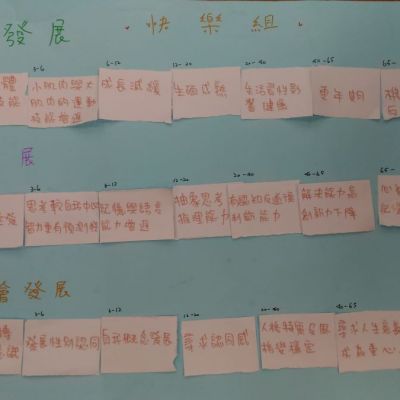 發展 · 快樂組 ·
3-6 6-12 12-20 20-40 40-65 65-
體
小肌肉與大
肌肉的運動
技能增進
成長減緩
生殖成熟
生活習性影
響健康
更年期
展
3-6 6-12 12-20 20-40 40-65 65-
思考較自我中心
記憶與語言
能力增進
抽象思考
推理能力
判斷能力
解決能力高
創新力下降
會發展
3-6 6-12 12-20 20-40 40-65
發展性別認同
自我概念發展
尋求認同感
人格特質
格變穩定
尋求人生意義